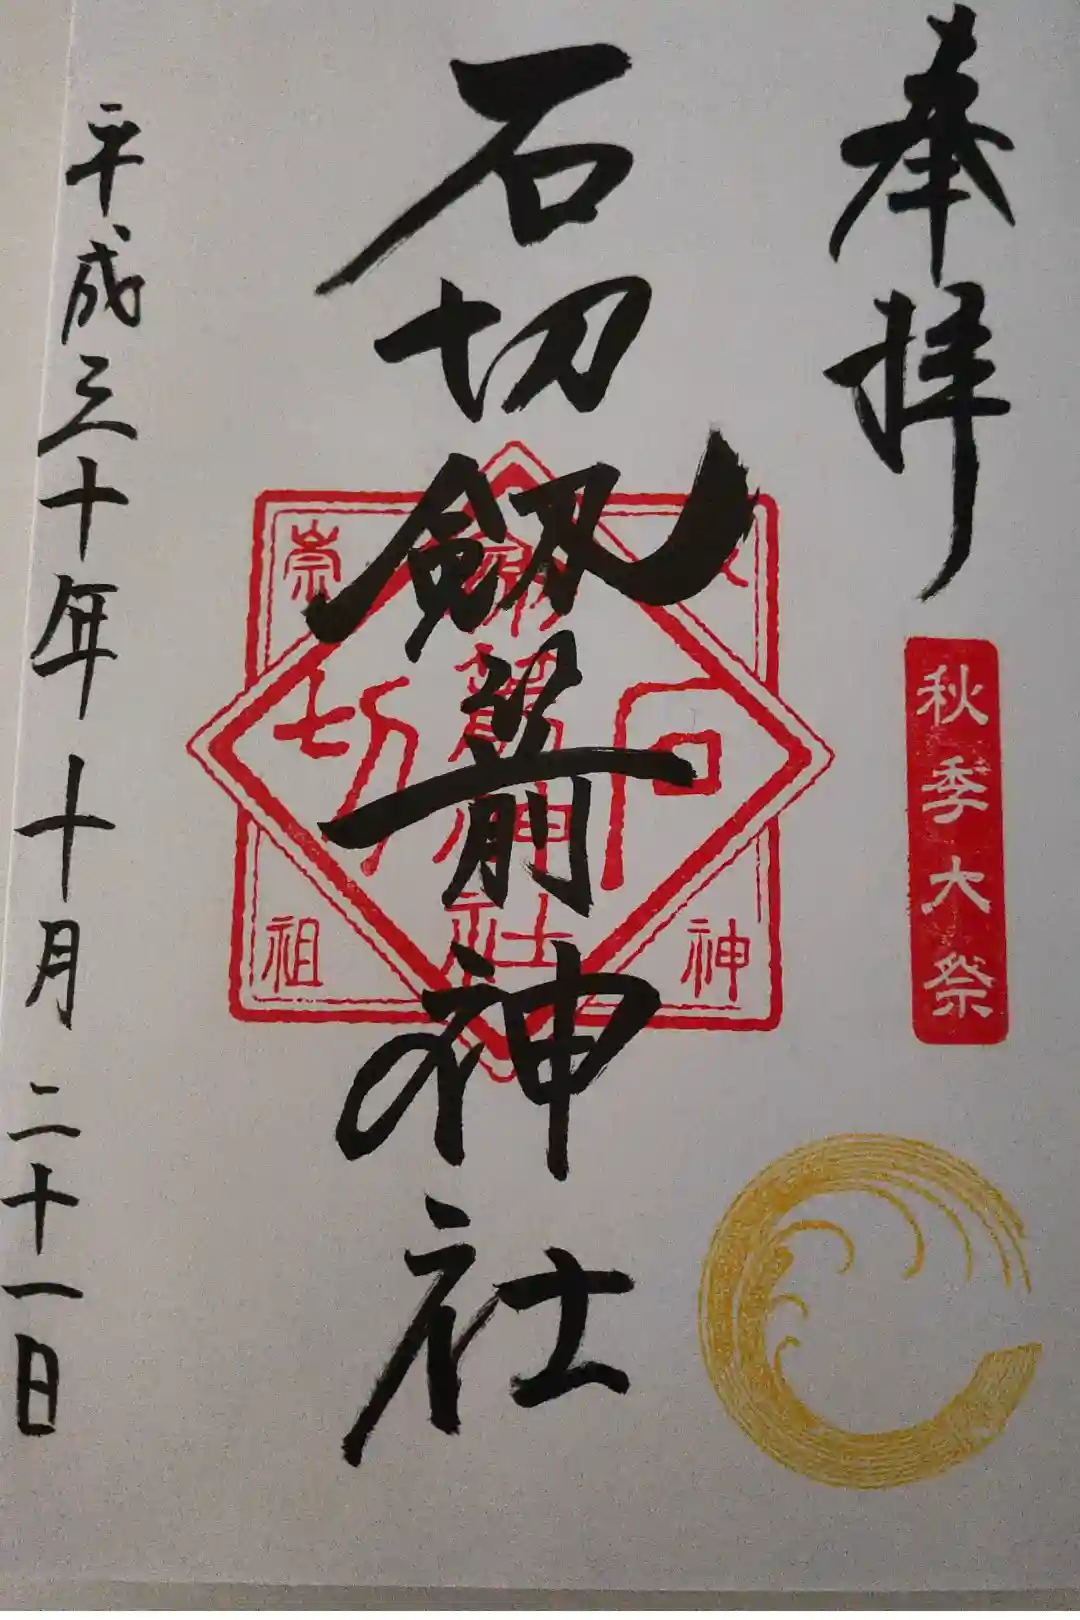 奉拝
秋季大祭
石切劔箭神社
平成三十年十月二十一日
石
切
敬
神
崇
祖